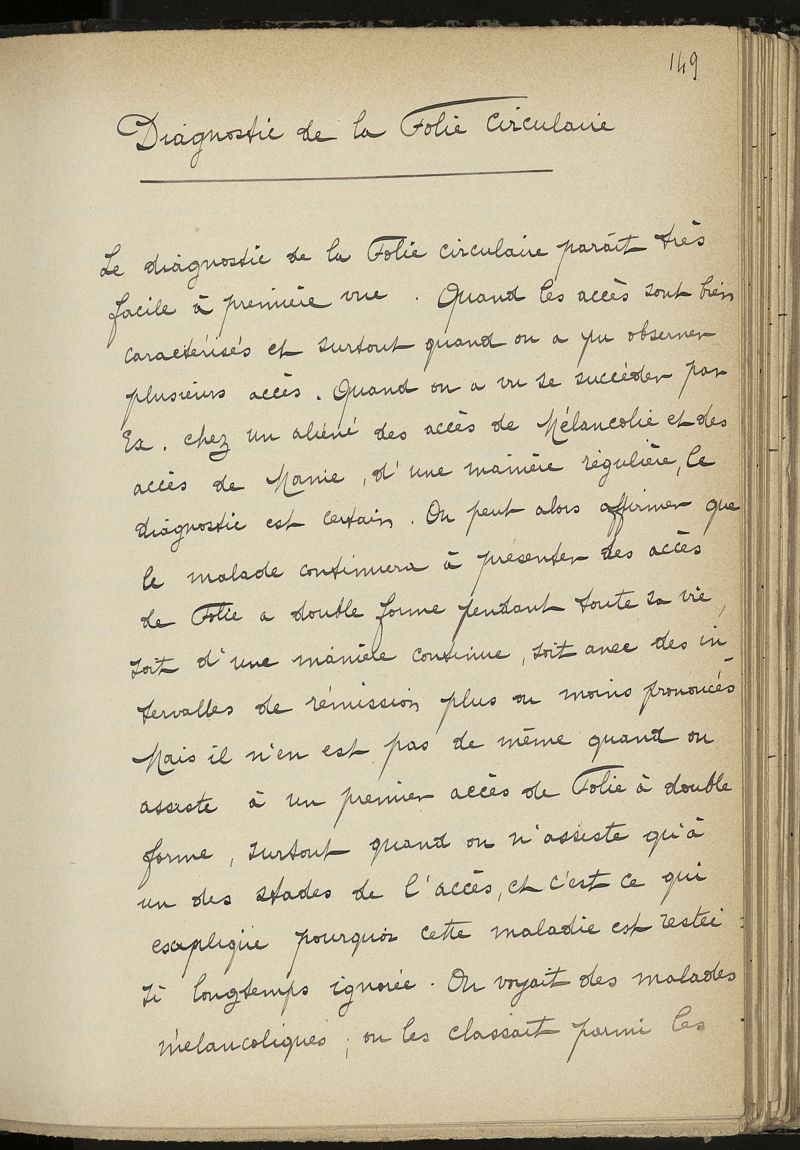 149
Diagnostic de la Folie circulaire
Le diagnostic de la Folie circulaire paraît très
facile à première vue. Quand les accès sont bien
caractérisés et surtout quand on a pu observer
plusieurs accès. Quand on a vu se succéder par
Ex. chez un aliéné des accès de Mélancolie et des
accès de Manie, d'une manière régulière, le
diagnostic est certain. On peut alors affirmer que
le malade continuera à présenter des accès
de Folie a double forme pendant toute sa vie,
soit d'une manière continue, soit avec des in-
tervalles de rémission plus ou moins prononcés
Mais il n'en est pas de même quand on
assiste à un premier accès de Folie à double
forme, surtout quand on n'assiste qu'à
un des stades de l'accès, et c'est ce qui
explique pourquoi cette maladie est restée
si longtemps ignorée. On voyait des malades
mélancoliques; on les classait parmi les